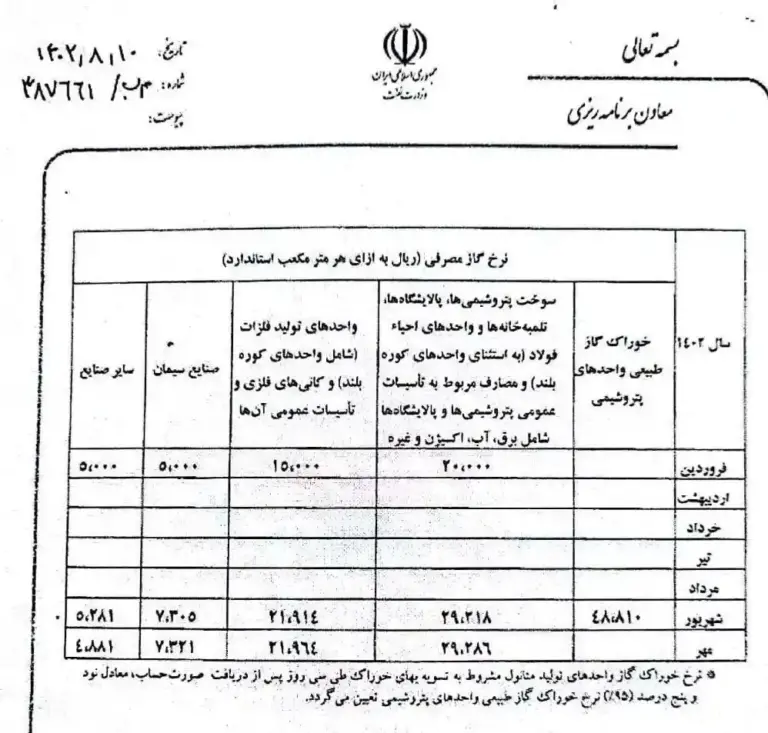 بسمه تعالی
جمهوری اسلامی ایران
وزارت نفت
معاون برنامه ریزی
تاریخ: ۱۴۰۲,۸,۱۰
شماره: ۴ب/ ۳۸۷۶۶۱
پیوست:
نرخ گاز مصرفی (ریال به ازای هر متر مکعب استاندارد)
سال ۱٤۰۲
خوراک گاز
طبیعی واحدهای
پتروشیمی
سوخت پتروشیمی‌ها، پالایشگاه‌ها،
تلمبه‌خانه‌ها و واحدهای احیاء
فولاد (به استثنای واحدهای کوره
بلند) و مصارف مربوط به تأسیسات
عمومی پتروشیمی‌ها و پالایشگاه‌ها
شامل برق، آب، اکسیژن و غیره
واحدهای تولید فلزات
(شامل واحدهای کوره
بلند) و کانی‌های فلزی و
تأسیسات عمومی آن‌ها
صنایع سیمان
سایر صنایع
فروردین ۲۰،۰۰۰ ۱۵،۰۰۰ ۵،۰۰۰ ۵،۰۰۰
اردیبهشت
خرداد
تیر
مرداد
شهریور ٤۸،۸۱۰ ۲۹،۲۱۸ ۲۱،۹۱٤ ۷،۳۰۵ ۵،۲۸۱
مهر ۲۹،۲۸۶ ۲۱،۹۶٤ ۷،۳۲۱ ٤،۸۸۱
* نرخ خوراک گاز واحدهای تولید متانول مشروط به تسویه بهای خوراک طی سی روز پس از دریافت صورت‌حساب، معادل نود
و پنج درصد (۹۵٪) نرخ خوراک گاز طبیعی واحدهای پتروشیمی تعیین می گردد.